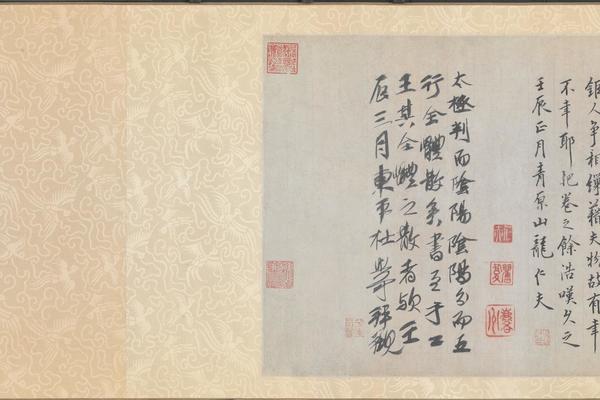 人爭相藉夫物故有幸
不幸耶把卷之餘浩嘆久之
壬辰正月青原山龍仁夫
太極判而陰陽陰陽分而五
行全體散矣書至于二
王其全體之散者歟壬
辰三月東平杜拜觀